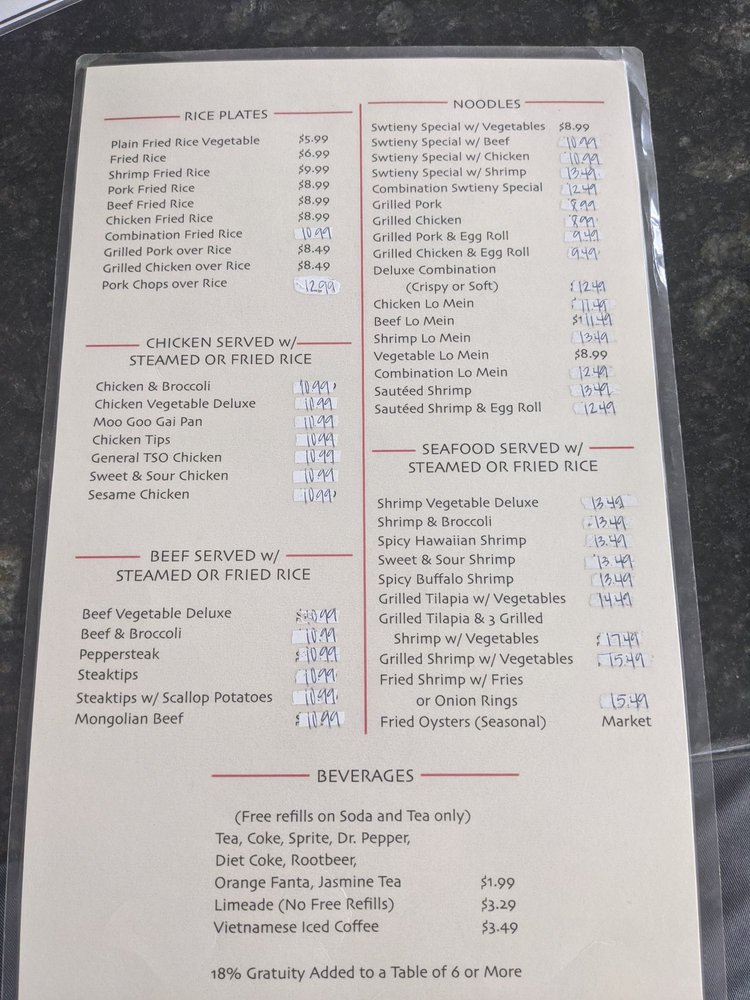 RICE PLATES
Plain Fried Rice Vegetable $5.99
Fried Rice $6.99
Shrimp Fried Rice $9.99
Pork Fried Rice $8.99
Beef Fried Rice $8.99
Chicken Fried Rice $8.99
Combination Fried Rice 10.99
Grilled Pork over Rice $8.49
Grilled Chicken over Rice $8.49
Pork Chops over Rice 12.99
CHICKEN SERVED w/
STEAMED OR FRIED RICE
Chicken & Broccoli 10.99
Chicken Vegetable Deluxe 10.99
Moo Goo Gai Pan 10.99
Chicken Tips 10.99
General TSO Chicken 10.99
Sweet & Sour Chicken 10.99
Sesame Chicken 10.99
BEEF SERVED w/
STEAMED OR FRIED RICE
Beef Vegetable Deluxe $10.99
Beef & Broccoli 10.99
Peppersteak 10.99
Steaktips 10.99
Steaktips w/ Scallop Potatoes 10.99
Mongolian Beef 10.99
NOODLES
Swtieny Special w/ Vegetables $8.99
Swtieny Special w/ Beef 10.99
Swtieny Special w/ Chicken 10.99
Swtieny Special w/ Shrimp 13.49
Combination Swtieny Special 12.49
Grilled Pork 8.99
Grilled Chicken 8.99
Grilled Pork & Egg Roll 9.49
Grilled Chicken & Egg Roll 9.49
Deluxe Combination
(Crispy or Soft) 12.49
Chicken Lo Mein 11.49
Beef Lo Mein $11.49
Shrimp Lo Mein 13.49
Vegetable Lo Mein $8.99
Combination Lo Mein 12.49
Sautéed Shrimp 13.49
Sautéed Shrimp & Egg Roll 12.49
SEAFOOD SERVED w/
STEAMED OR FRIED RICE
Shrimp Vegetable Deluxe 13.49
Shrimp & Broccoli 13.49
Spicy Hawaiian Shrimp 13.49
Sweet & Sour Shrimp 13.49
Spicy Buffalo Shrimp 13.49
Grilled Tilapia w/ Vegetables 14.49
Grilled Tilapia & 3 Grilled
Shrimp w/ Vegetables 17.49
Grilled Shrimp w/ Vegetables 15.49
Fried Shrimp w/ Fries
or Onion Rings 15.49
Fried Oysters (Seasonal) Market
BEVERAGES
(Free refills on Soda and Tea only)
Tea, Coke, Sprite, Dr. Pepper,
Diet Coke, Rootbeer,
Orange Fanta, Jasmine Tea $1.99
Limeade (No Free Refills) $3.29
Vietnamese Iced Coffee $3.49
18% Gratuity Added to a Table of 6 or More